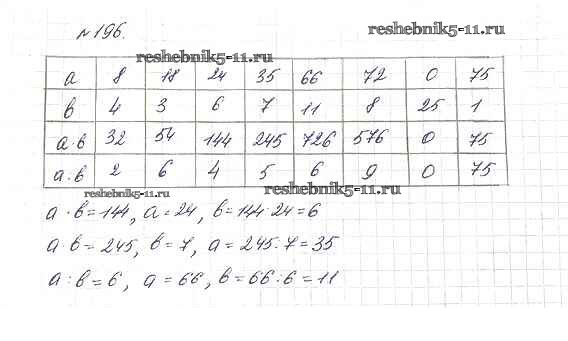 №196.
reshebnik5-11.ru
reshebnik5-11.ru
a 8 18 24 35 66 72 0 75
в 4 3 6 7 11 8 25 1
a·в 32 54 144 245 726 576 0 75
a:в 2 6 4 5 6 9 0 75
reshebnik5-11.ru
reshebnik5-11.ru
a·в=144, a=24, в=144:24=6
a·в=245, в=7, a=245:7=35
a:в=6, a=66, в=66:6=11